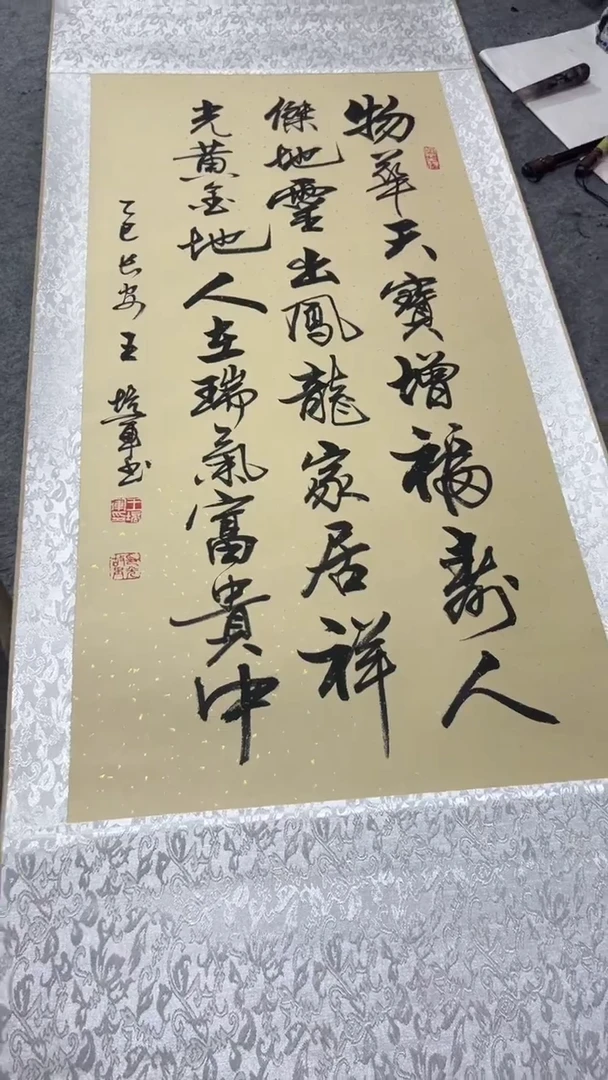 物華天寶增福壽人
傑地靈出鳳龍家居祥
光黃金地人在瑞氣富貴中
乙巳長安王培軍書